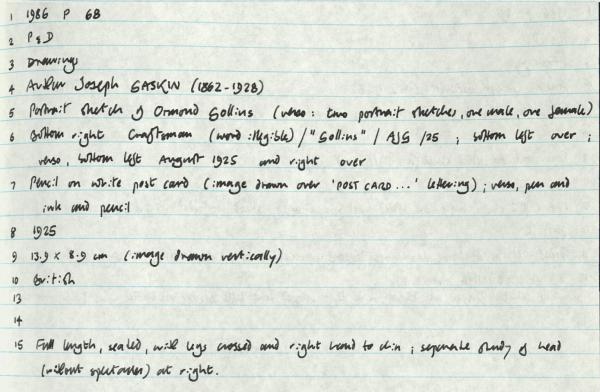 1 1986 P 68
2 P & D
3 Drawings
4 Arthur Joseph GASKIN (1862-1928)
5 Portrait sketch of Ormond Gollins (verso: two portrait sketches, one male, one female)
6 Bottom right Craftsman (word illegible) / "Gollins" / AJG /25 ; bottom left over ;
verso, bottom left August 1925 and right over
7 Pencil on white post card (image drawn over 'POST CARD...' lettering) ; verso, pen and
ink and pencil
8 1925
9 13.9 x 8.9 cm (image drawn vertically)
10 British
13
14
15 Full length, seated, with legs crossed and right hand to chin ; separate study of head
(without spectacles) at right.